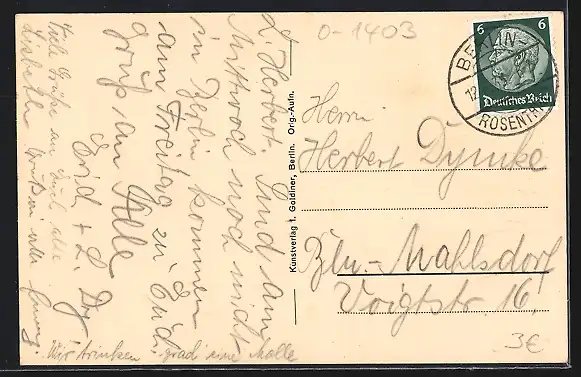 0-1403
6 6
Deutsches Reich
BERLIN-
ROSENTH
L. Herbert. Sind am
Mittwoch noch nicht
in Berlin kommen
am Freitag zu Euch
Gruß an Alle
Erid + L. Dy
Viele Grüße an Euch alle
Liebe
Wir trinken grad eine Molle
Kunstverlag I. Goldiner, Berlin. Orig.-Aufn.
Herrn
Herbert Dymke
Bln.-Mahlsdorf
Voigtstr 16.
3€